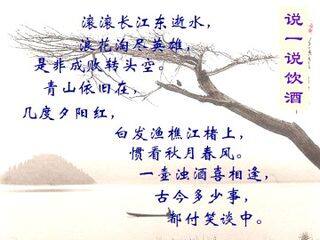 说一说饮酒
滚滚长江东逝水，
浪花淘尽英雄，
是非成败转头空。
青山依旧在，
几度夕阳红，
白发渔樵江楮上，
惯看秋月春风。
一壶浊酒喜相逢，
古今多少事，
都付笑谈中。